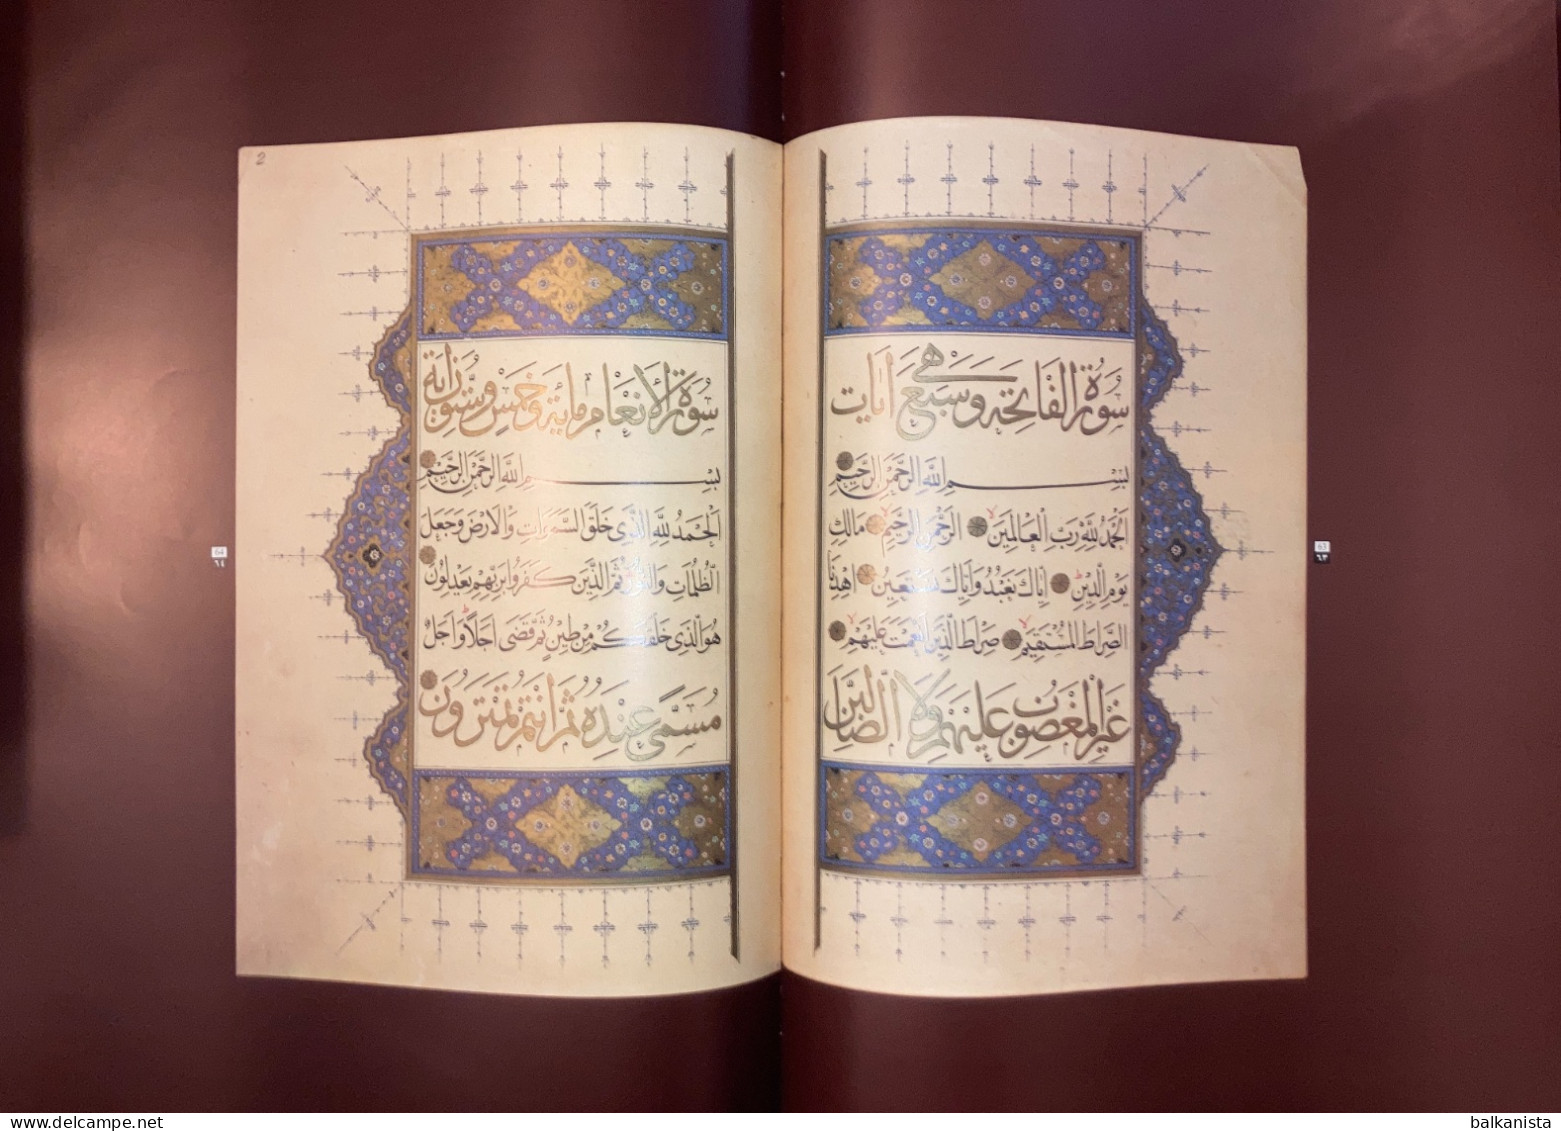 سورة الفاتحة وهي سبع آيات
بسم الله الرحمن الرحيم
الحمد لله رب العالمين الرحمن الرحيم مالك
يوم الدين اياك نعبد واياك نستعين اهدنا
الصراط المستقيم صراط الذين انعمت عليهم
غير المغضوب عليهم ولا الضالين
63
٦٣
2
سورة الانعام مایة وخمس وستون اية
بسم الله الرحمن الرحيم
الحمد لله الذي خلق السموات والارض وجعل
الظلمات والنور ثم الذين كفروا بربهم يعدلون
هو الذي خلقكم من طين ثم قضى اجلا واجل
مسمى عنده ثم انتم تمترون
64
٦٤
balkanista